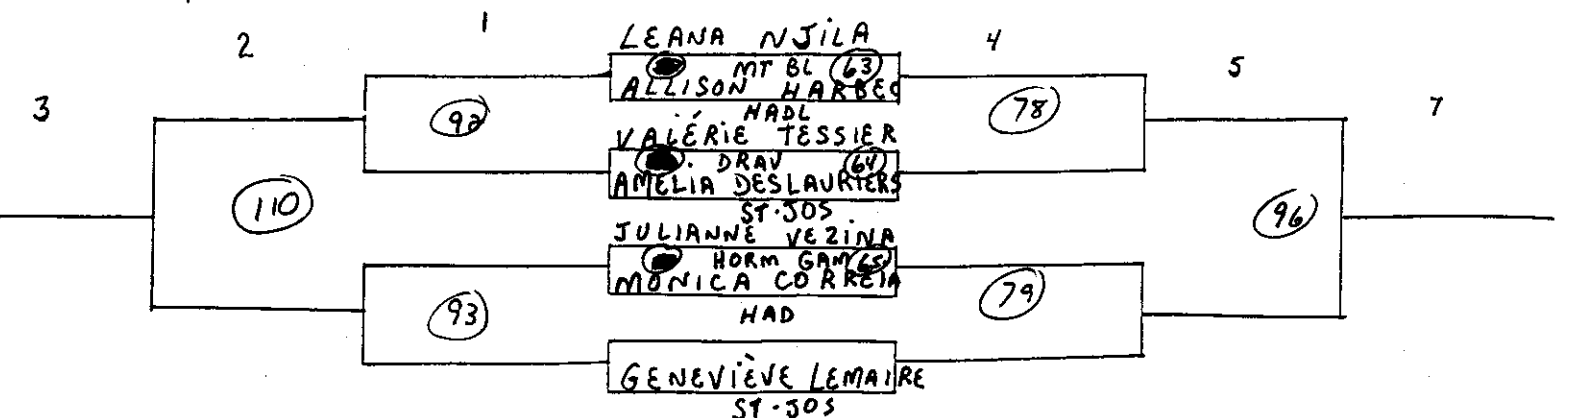 1
2
3
4
5
7
LEANA NJILA
MT BL 63
ALLISON HARBEC
HADL
VALÉRIE TESSIER
DRAV 64
AMELIA DESLAURIERS
ST-JOS
JULIANNE VEZINA
HORM GAM 65
MONICA CORREIA
HAD
GENEVIÈVE LEMAIRE
ST-JOS
92
78
110
96
93
79